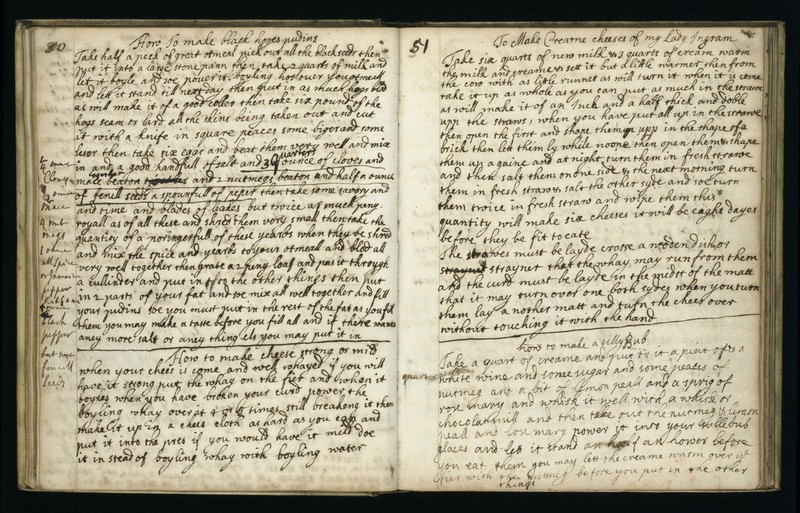 80
How to make black hoges pudins
Take half a peck of great otmeal pick out all the black seeds then
put it into a large stone pann then take 2 quarts of milk and
let it boyle and soe pouer it boyling hot ouer your otmeall
and lett it stand till next day then put in as much hogs blod
as will make it of a good collor then take six pound of the
hogs seam or lard all the skins being taken out and cut
it with a knife in square peaces some biger and some
leser then take six eggs and beat them very well and mix
in and a good handfull of salt and 3 quarters ounce of cloves and
mace beaton together and 2 nutmegs beaton and half n ounce
of fenill seeds a spounfull of peper then take some savory and
and time and blades of but twice as much peny
royall as of all these and shred them very small then take the
quantity of a poringerfull of these yearbs when they be shred
and mix the spice and yearbs to your otmeall and blod all
very well together then grate a 2 peny loaf and pas it through
a cullinder and put in to the other things then put
in 2 parts of your fat and soe mix all well together and fill
your pudins soe you must put in the rest of the fat as you fill
them you may make a taste before you fill all and if there wants
aney more salt or aney thing els you may put it in
mace
mace
4 nut
megs
1 ounce
all spice
or Jamaica
pepper
half a
black
pepper
but no
fennill
seeds
How to make cheese strong or mild
when your chees is come and well whayed if you will
have it strong put the whay on the fier and when it
boyles when you have broken your curd power the
boyling whay over it 4 or 5 times still breakeing it then
shake it up in a chees cloth as hard as you can and
put it into the pres if you would have it mild doe
it in stead of boyling whay with boyling water
51
To Make Creame cheeses of my Lady Ingram
Take six quarts of new milk & 2 quarts of cream warm
the milk and creame & sett it but a little warmer then from
the cow with as little runnet as will turn it when it is come
take it up as whole as you can put as much in the strawe
as will make it of an Inch and a half thick and doble
upp the straws when you have put all up in the strawe
then open the first and shape them upp in the shape of a
brick then let them ly while noone then open them & shape
them up againe and at night turn them in fresh strawe
and then salt them on one side & the next morning turn
them in fresh straws salt the other syde and soe turn
them twice in fresh straw and wipe them this
quantity will make six cheeses it will be eaght dayes
before they be fit to eate
The strawes must be layde crosse a wooden dish or
strayner that the whay may run from them
and the curd must be layde in the midst of the matt
that it may turn over one both sydes when you turn
them lay a nother matt and turn the chees over
without touching it with the hand
how to make a sillybub
Take a quart of creame and put to it a pint of a
quarter
white wine and some sugar and some peaces of
nutmeg and a bit of limon peall and a sprig of
rose mary and whisk it well with a whisk or
chocolat mill and then take out the nutmeg & limon
peall and rose mary power it into your sillebub
glases and let it stand an half an hower before
you eat them you may lett the creame warm over ye
fier with the nutmeg before you put in the other
things